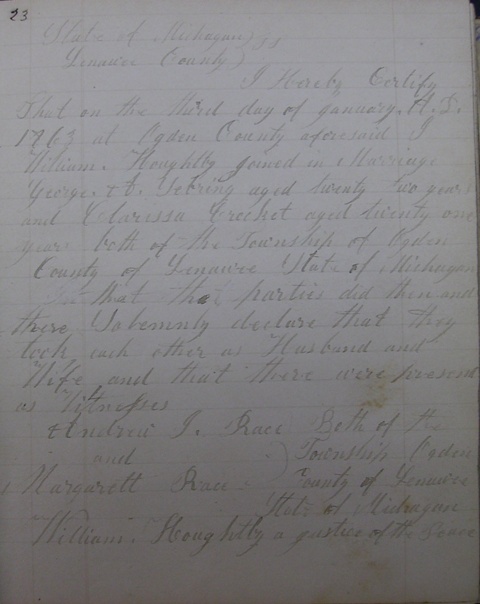 23
State of Michagan) ss
Lenawee County)
I Hereby Certify
That on the third day of january A.D.
1763 at Ogden County aforesaid I
William. Houghtby joined in Marriage
George. Sebring aged twenty two years
and Clarissa Crochet aged twenty one
years both of the Township of Ogden
County of Lenawee State of Michagan
that the parties did then and
there Solemnly declare that they
took each other as Husband and
Wife and that there were present
as Witnesses
Andrew J. Race Both of the
and ) Township Ogden
Margarett Race County of Lenawee
State of Michagan
William. Houghtby a justice of the Peace